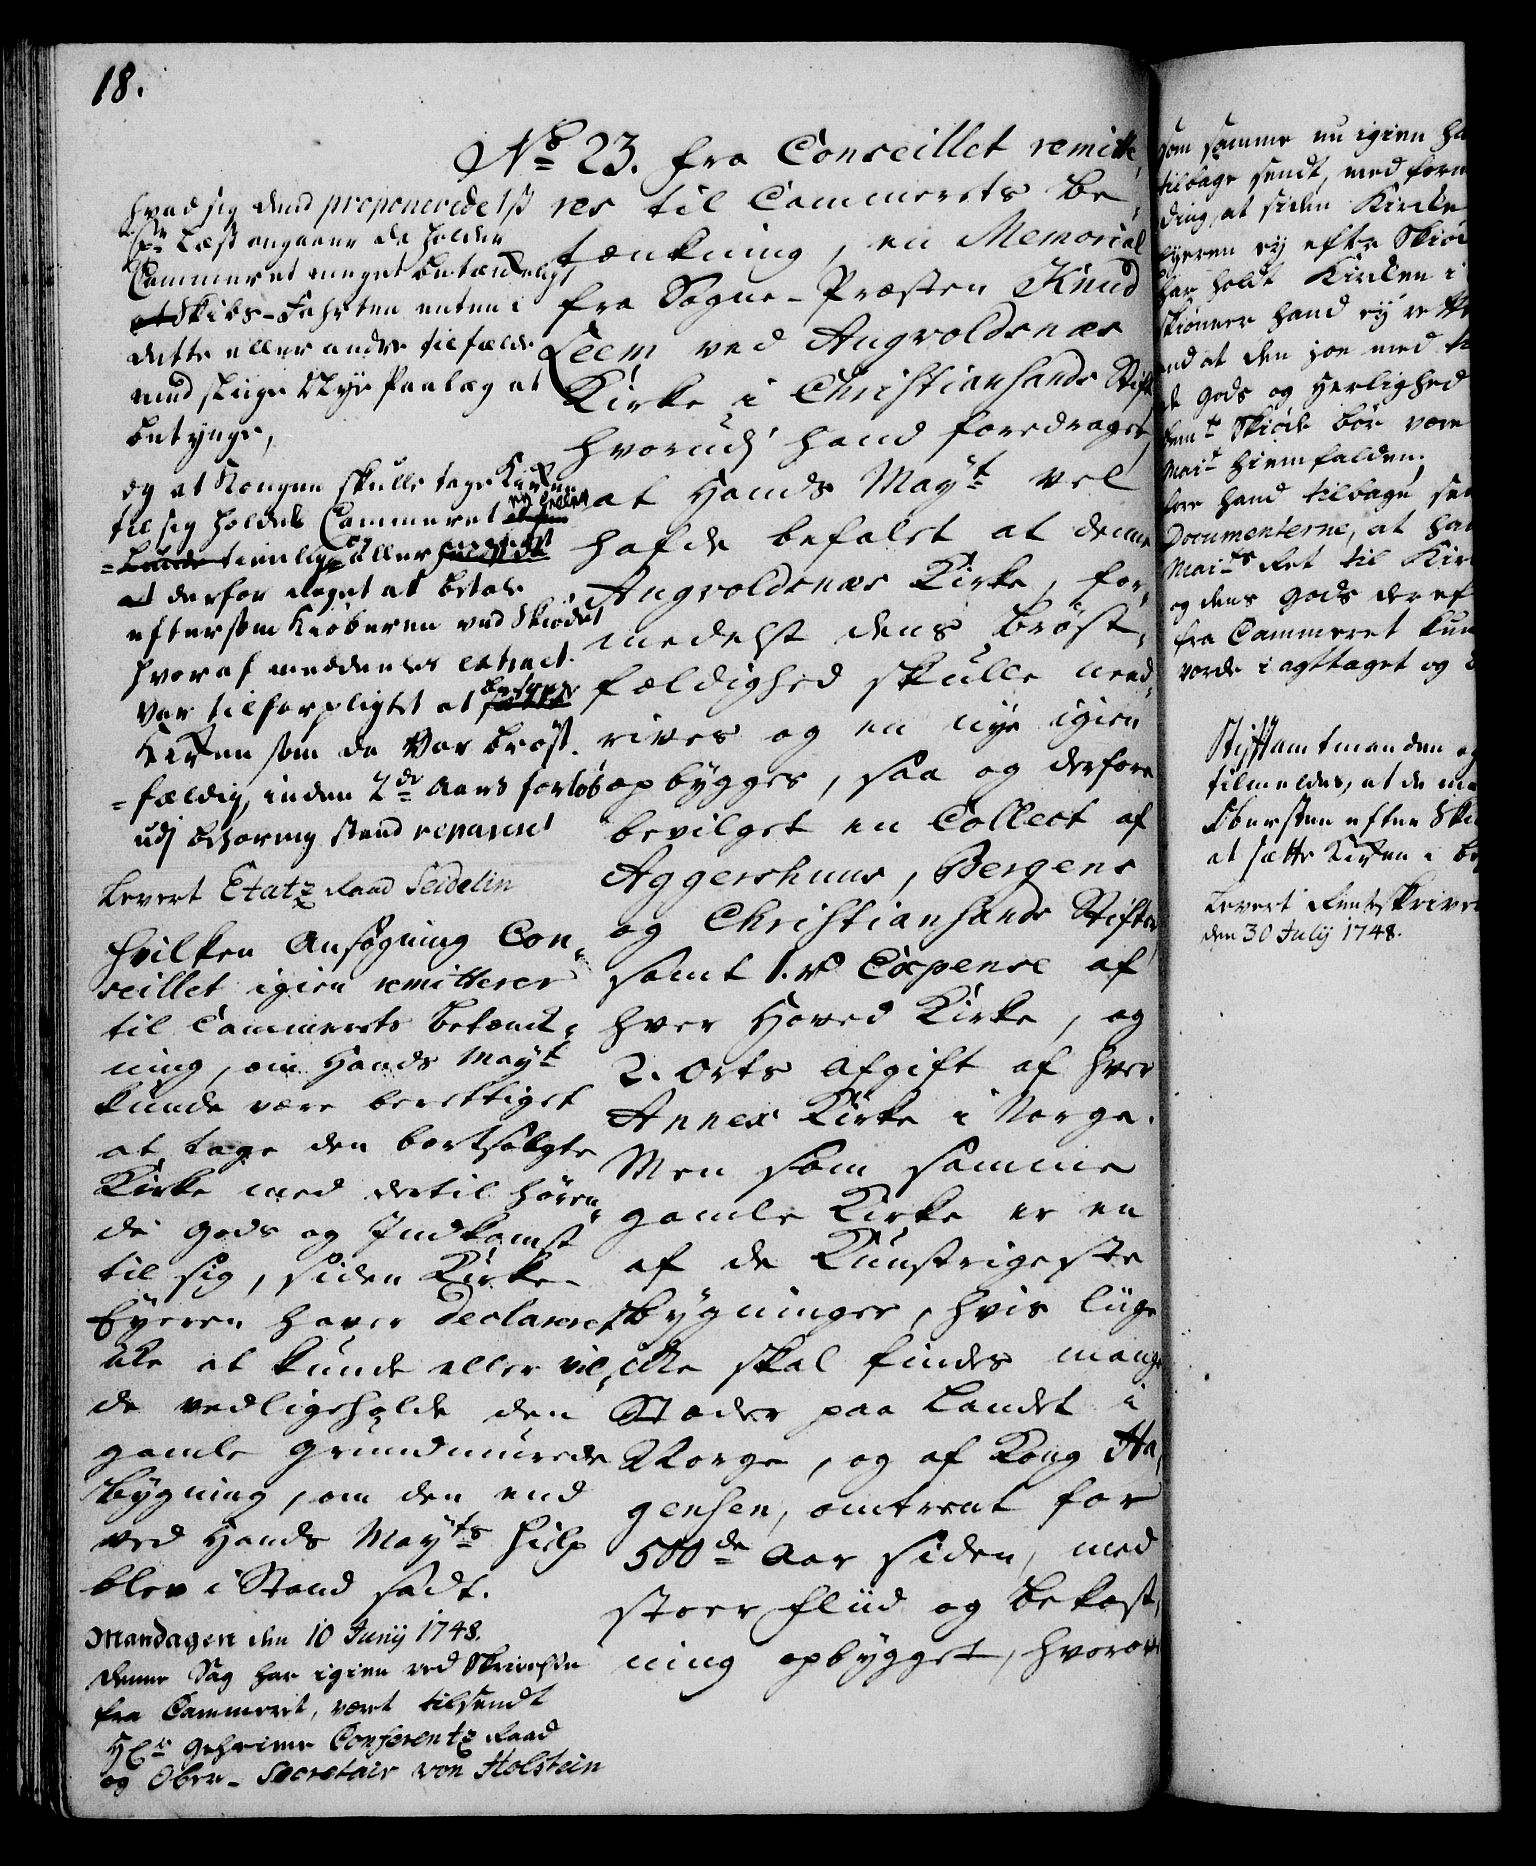 18.
No 23. fra Conseillet remitte,
res til Cammerets Be,
tænkning, en Memorial
fra Sogne-Præsten Knud
Leem ved Augvoldsnæs
Kirke i Christiansands Stift
hvorudj hand foredrager,
at Hands Mayt vel
hafde befalet at denne
Augvoldsnæs Kirke, for,
medelst dens brøst,
fældighed skulle need,
rives og en nye igien
opbygges, saa og derfore
bevilget en Collect af
Aggershuus, Bergens
og Christiansands Stifter
samt 1. rd Expense af
hver Hoved Kirke, og
2. Orts Afgift af hver
Annex Kirke i Norge.
Men som samme
gamle Kirke er en
af de Kunstrigeste
bygninger, hvis liige
ikke skal findes mange
Stæder paa Landet i
Norge, og af Kong Ha,
gensen, omtrent for
500de Aar siden, med
stoer fliid og bekost,
ning opbygget, hvorov
hvad sig dend proponerede 1st
Læst angaaer da holder
Cammeret meget betænkeligt
at Skibs-Farten enten i
dette eller andre tilfælde
med slige Nye Paalæg at
betynge,
og at Kongen skulle tage Kirken
til sig holder Cammeret ey heller
tienlig og eller
at derfor noget at betale
eftersom Kiøberen ved Skiødet
hvoraf meddeeles extract
var tilforpligtet at
Kirken som da var brøst
-fældig, inden 2de Aars forløb
udj behørig stand reparere
Levert Etatz Raad Seidelin
Hvilken Ansøgning Con,
seillet igien remitterer
til Cammerets betænk,
ning, om Hands Mayt
kunde være berettiget
at tage den bortsolgte
Kirke med dertil høren,
de gods og Indkomst
til sig, siden Kirke-
Eyeren haver declareret
ikke at kunde eller vil,
de vedligeholde den
gamle Grundmurede
bygning, om den end
ved Hands Mayts hielp
blev i Stand sadt.
Mandagen den 10 Junij 1748.
denne Sag har igien ved Skrivelse
fra Cammeret, været tilsendt
Hr Geheime Conferentz Raad
og Ober-Secretair von Holstein
som samme nu igien ha
tilbage sendt, med form
ding, at siden Kirke
Eyeren ey efter Skiød
har holdt Kirken i
skiønner hand ey rette
end at den joe med
de gods og Herlighed
Skiøde bør være
Mait hiemfalden,
fore hand tilbage sen
Documenterne, at ha
Maits Ret til Kir
og dens Gods deref
fra Cammeret kun
vorde i agttaget og
Stiftamtmanden og
tilmeldes, at de ma
Obersten efter Ski
at sætte Kirken i be
Levert Rentskriver
den 30 July 1748.